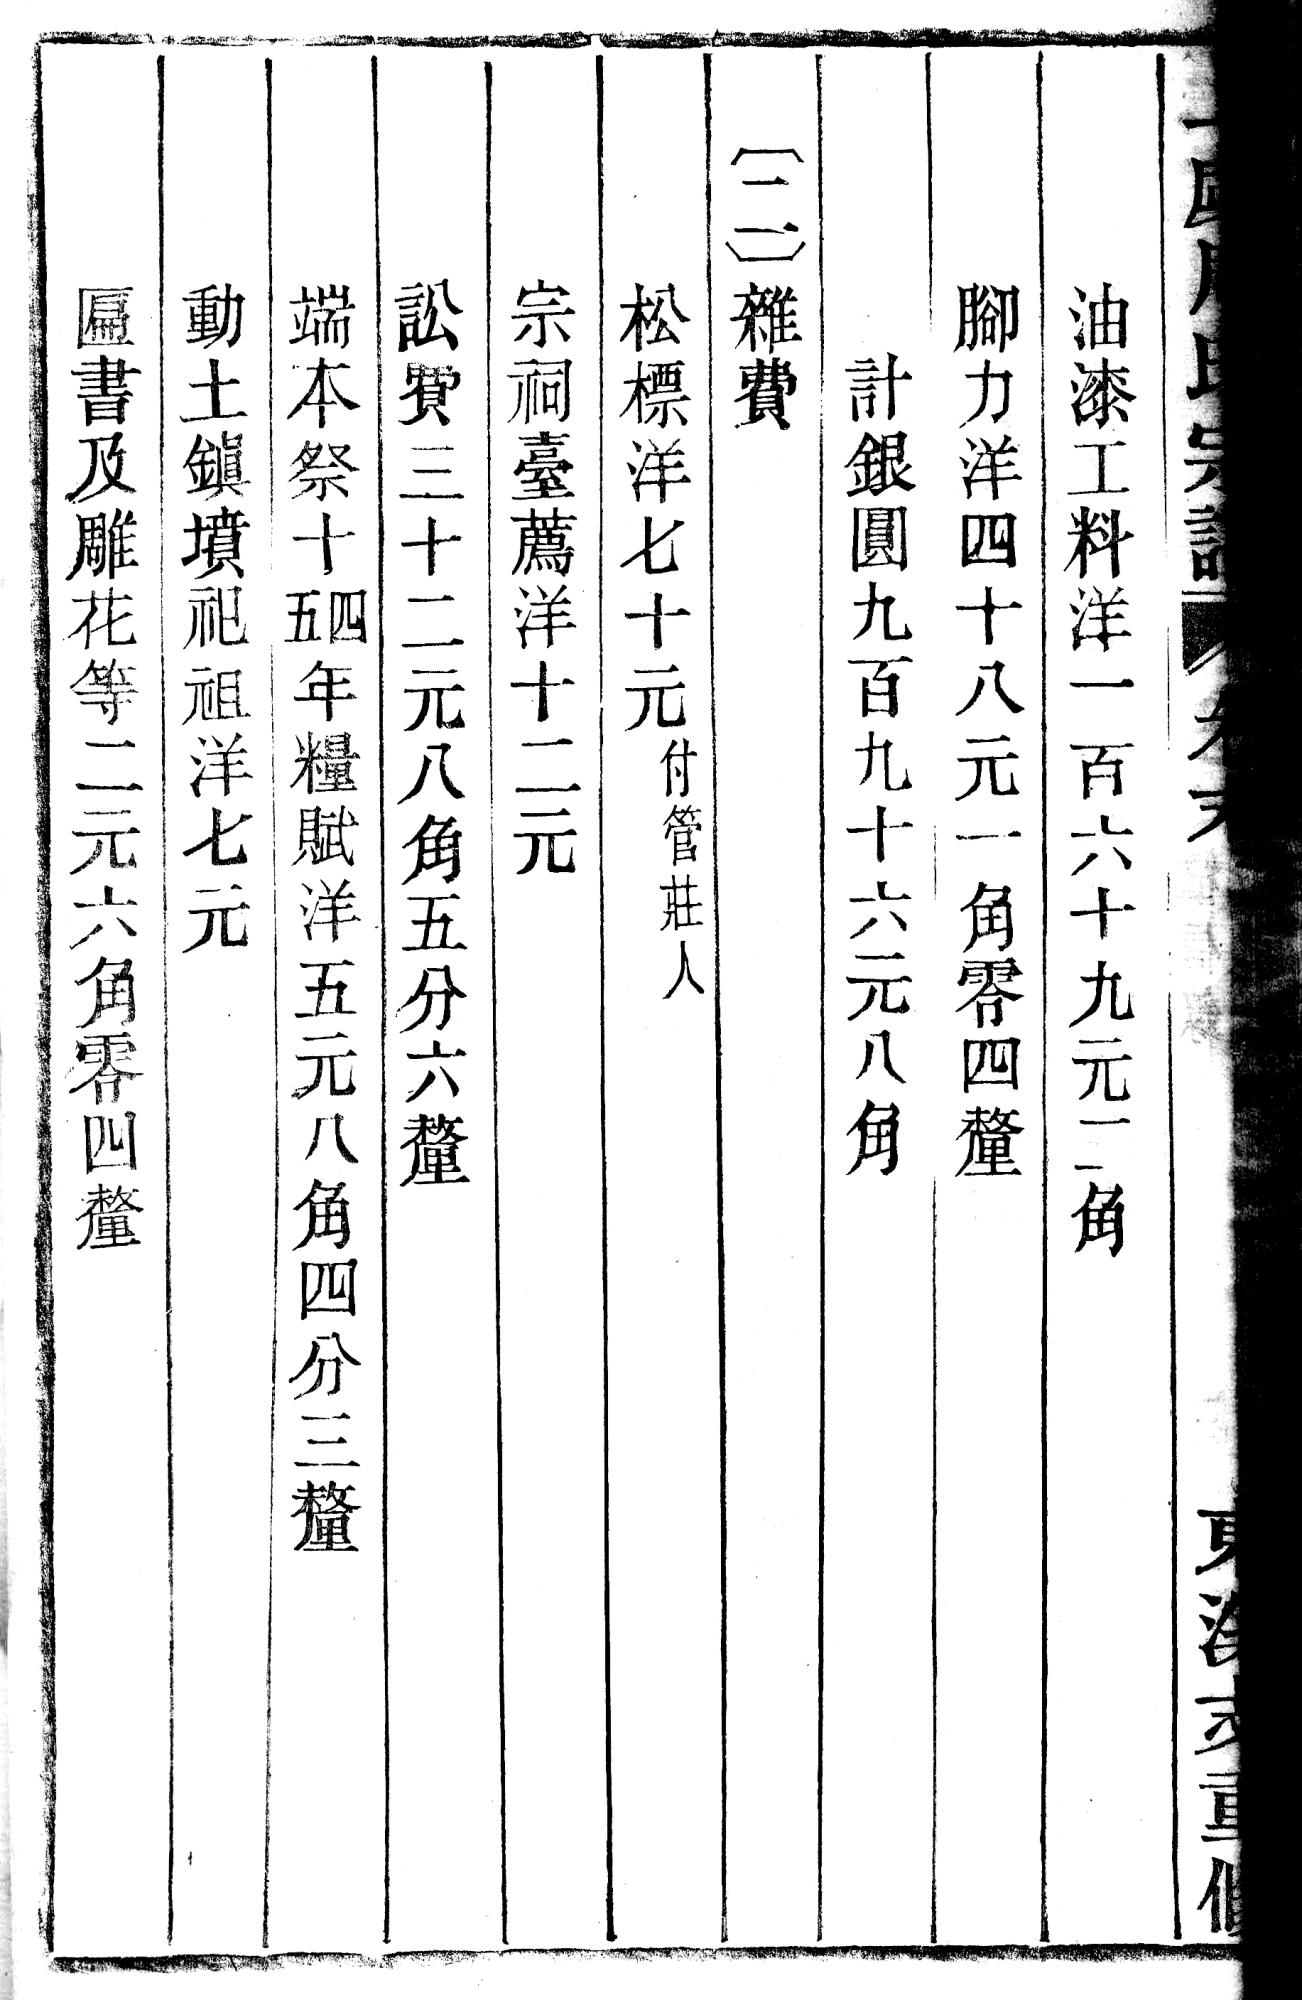 氏宗譜 卷末 重修
油漆工料洋一百六十九元二角
腳力洋四十八元一角零四釐
計銀圓九百九十六元八角
〔三〕雜費
松標洋七十元付管莊人
宗祠臺薦洋十二元
訟費三十二元八角五分六釐
端本祭十四五年糧賦洋五元八角四分三釐
動土鎭墳祀祖洋七元
匾書及雕花等二元六角零四釐